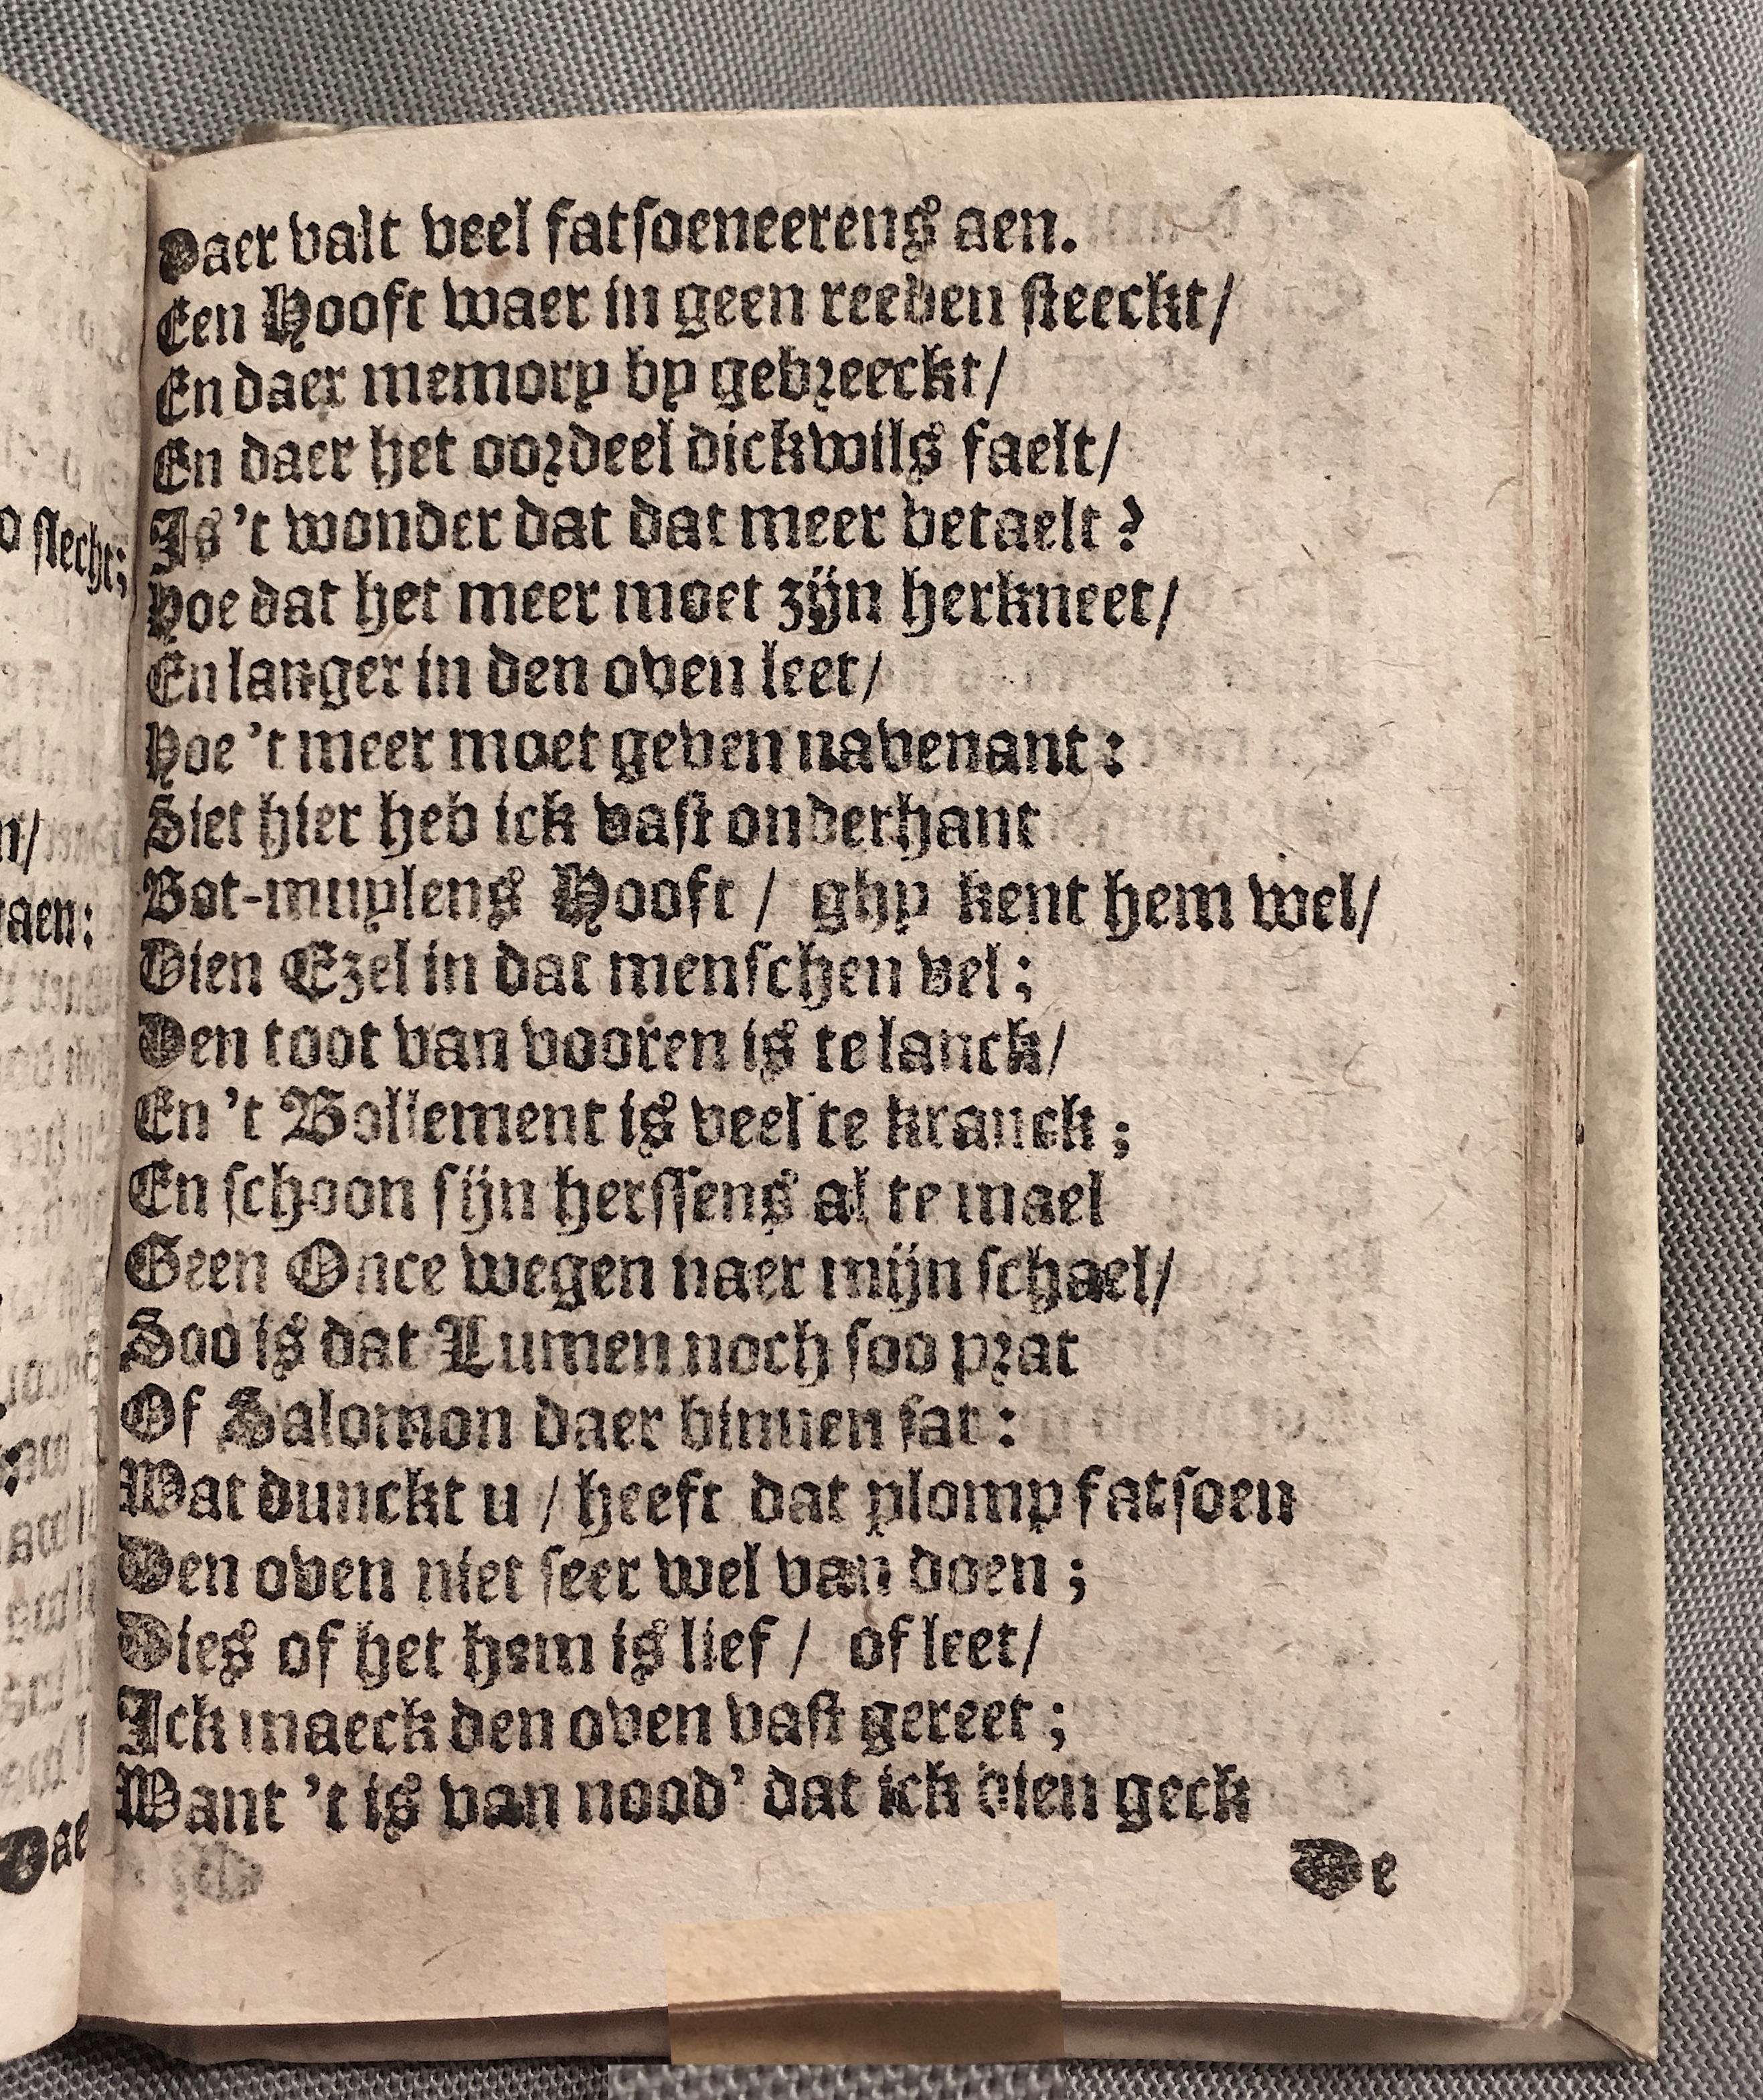 Daer valt veel fatsoeneerens aen.
Een Hooft waer in geen reeden steeckt/
En daer memory by gebreeckt/
En daer het oordeel dickwils faelt/
Is 't wonder dat dat meer betaelt?
Hoe dat het meer moet zijn herkneet/
En langer in den oven leet/
Hoe 't meer moet geven navenant:
Siet hier heb ick vast onderhant
Bot-muylens Hooft / ghy kent hem wel/
Dien Ezel in dat menschen vel;
Den toot van vooren is te lanck/
En 't Bollement is veel te kranck;
En schoon sijn herssens al te mael
Geen Once wegen naer mijn schael/
Soo is dat Lumen noch soo prat
Of Salomon daer binnen sat:
Wat dunckt u / heeft dat plomp fatsoen
Den oven niet seer wel van doen;
Dies of het hem is lief / of leet/
Ick maeck den oven vast gereet;
Want 't is van nood' dat ick dien geck
De
slecht;
n/
taen:
Dae